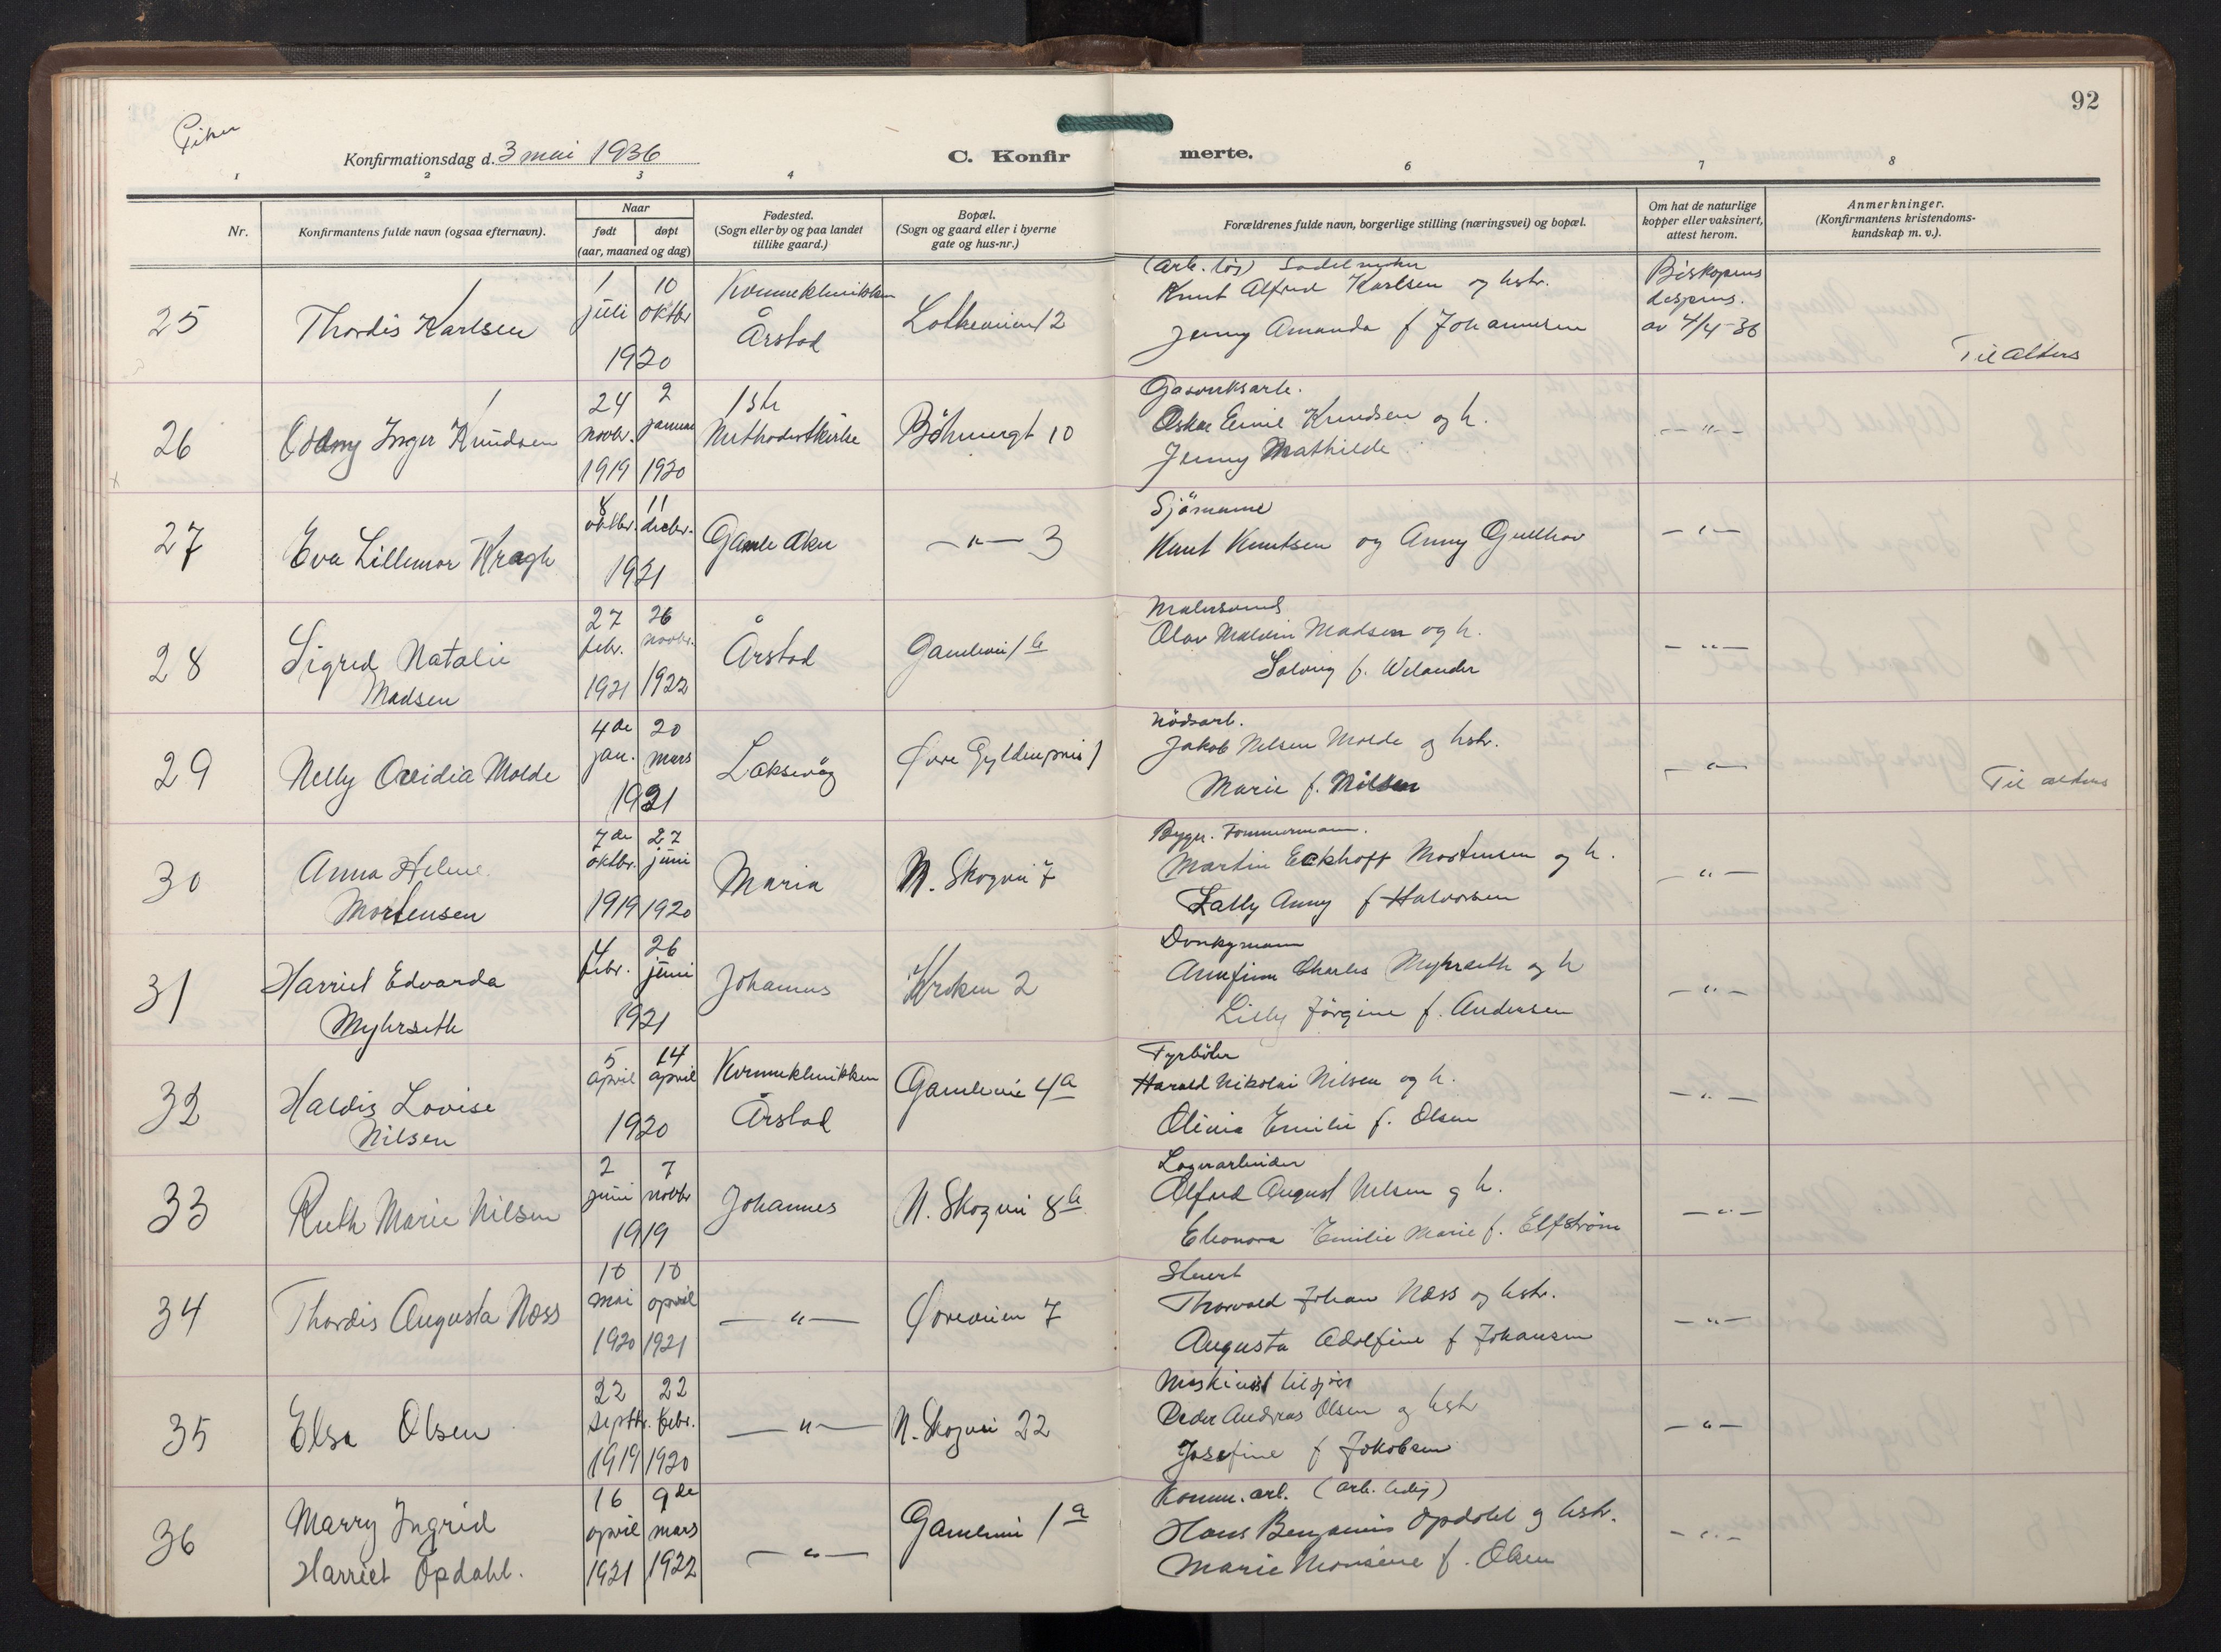 92
Piker
Konfirmationsdag d. 3 mai 1936
C. Konfir
merte.
1 2 3 4 6 7 8
Nr.
Konfirmantens fulde navn (ogsaa efternavn).
Naar
født døpt
(aar, maaned og dag)
Fødested.
(Sogn eller by og paa landet
tillike gaard.)
Bopæl.
(Sogn og gaard eller i byerne
gate og hus-nr.)
Forældrenes fulde navn, borgerlige stilling (næringsvei) og bopæl.
Om hat de naturlige
kopper eller vaksinert,
attest herom.
Anmerkninger.
(Konfirmantens kristendoms-
kundskap m. v.).
25
Thordis Karlsen
1 juli 10 oktbr
1920
Kvinneklinikken
Årstad
12
(arb. løs)
Knut Alfred Karlsen og hstr.
Jenny Amanda f Johannesen
Biskopens
dispens.
av 4/4-36
Til alters
26
Oddny Inger Knudsen
24 novbr. 1919
2 januar 1920
Methodistkirke
Böhmergt 10
Gasverksarb.
Oskar Emil Knudsen og h.
Jenny Mathilde
— " —
27
Eva Lillemor Kragh
8 oktbr. 11 decbr.
1921
Gamle Aker
— " — 3
Sjömann
Knut Knutsen og Anny Gullhav
— " —
28
Sigrid Natalie
Madsen
27 febr. 1921
26 novbr. 1922
Årstad
Gamlevei 1 b
Malersvend
Olav Madsen og h.
Solveig f. Welander
— " —
29
Nelly Ovidia Molde
4de jan. 20 mars
1921
Laksevåg
Øvre Gyldenpris 1
Nödsarb.
Jakob Nilsen Molde og hstr.
Marie f. Nilsen
— " —
Til alters
30
Anna Helene
Mortensen
7de oktbr. 1919
27 juni 1920
Maria
N. Skogvei 7
Bygn. Tømmermann.
Martin Eckhoff Mortensen og h.
Lally Anny f Halvorsen
— " —
31
Harriet Edvarda
Myhrseth
4 febr. 26 juni
1921
Johannes
Kroken 2
Donkeymann
Arnfinn Charles Myhrseth og h
Lilly Jörgine f. Andersen
— " —
32
Haldis Lovise
Nilsen
5 april 14 april
1920
Kvinneklinikken
Årstad
Gamlevei 4a
Fyrböter
Harald Nikolai Nilsen og h.
Olivia Emilie f. Olsen
— " —
33
Ruth Marie Nilsen
2 juni 7 novbr
1919
Johannes
N. Skogvei 8 b
Lagerarbeider
Alfred August Nilsen og h.
Eleonora Emilie Marie f. Elfström
— " —
34
Thordis Augusta Næss
10 mai 1920
10 april 1921
— " —
Øvreveien 7
Stuert
Thorvald Johan Næss og hstr.
Augusta Adolfine f Johansen
— " —
35
Elsa Olsen
22 septbr. 1919
22 febr. 1920
— " —
N. Skogvei 22
Maskinist tilsjøs
Peder Andreas Olsen og hstr
Josefine f Jakobsen
— " —
36
Marry Ingrid
Harriet Opdahl.
16 april 1921
9de mars 1922
— " —
Gamlevei 1 a
Komm. arb. (arb. ledig)
Hans Benjamin Opdahl og hstr.
Marie Monsine f. Olsen
— " —